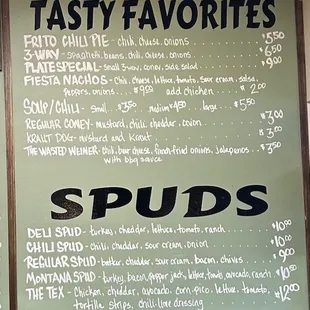 TASTY FAVORITES
FRITO CHILI PIE - chili, cheese, onions $5.50
3-WAY - spaghetti, beans, chili, cheese, onions 6.50
PLATE SPECIAL - small 3way, coney, side salad 9.00
FIESTA NACHOS - chili, cheese, lettuce, tomato, sour cream, salsa,
peppers, onions... $9.50 add chicken... $2.00
SOUP/CHILI - small... $3.50 medium $4.50 ... large... $5.50
REGULAR CONEY - mustard, chili, cheddar, onion $3.00
KRAUT DOG - mustard and kraut $3.00
THE WASTED WEINER - chili, beer cheese, fresh-fried onions, jalapenos ... $3.50
with bbq sauce
SPUDS
DELI SPUD - turkey, cheddar, lettuce, tomato, ranch $10.00
CHILI SPUD - chili, cheddar, sour cream, onion $10.00
REGULAR SPUD - butter, cheddar, sour cream, bacon, chives $9.00
MONTANA SPUD - turkey, bacon, pepper jack, lettuce, tomato, avocado, ranch $10.50
THE TEX - Chicken, cheddar, avocado, corn-pico, lettuce, tomato, $12.00
tortilla strips, chili-lime dressing